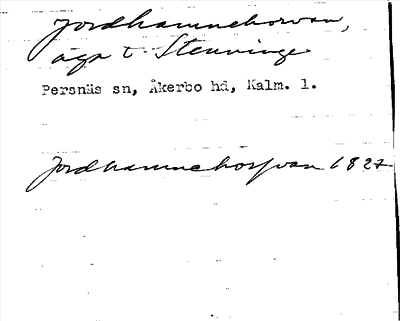 Jordhamnehorvan,
äga t. Stenninge
Persnäs sn, Åkerbo hd, Kalm. l.
Jordhamnehorfvan 1827